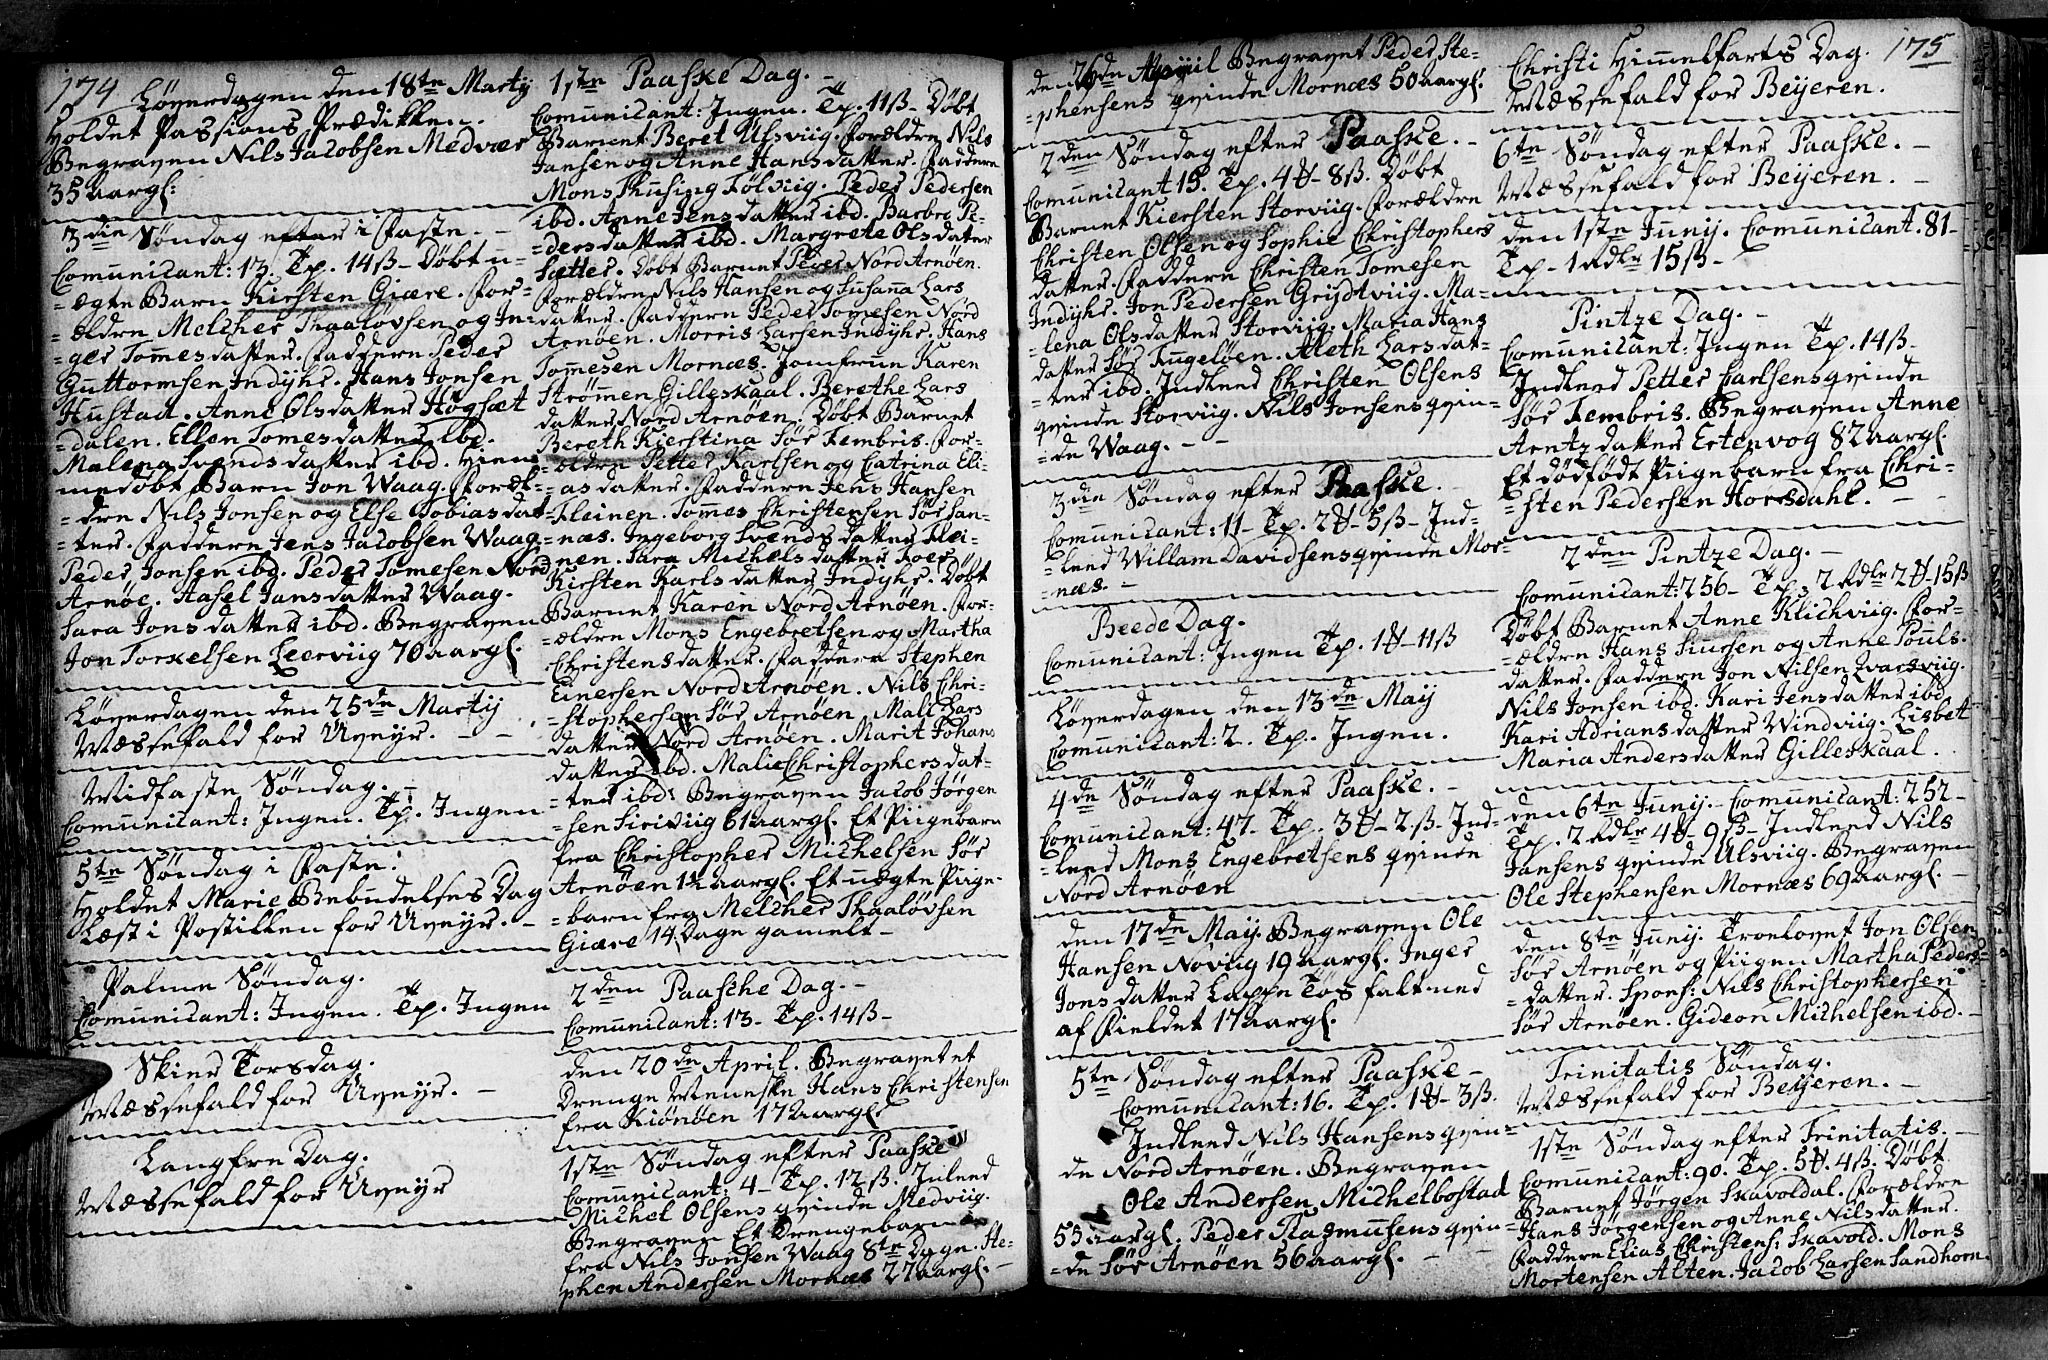 174
Löverdagen den 18te Martij
Holdet Passions Prædikken.
Begraven Nils Jacobsen Medvær
35 aargl:
3die Söndag efter i Faste.
Comunicant: 13. Tp. 14ß - Döbt u-
=ægte Barn Kirsten Giære. For-
=ældre Melcher Thaalövsen og In-
=ger Tomesdatter. Faddere Peder
Guttormsen Indÿhr. Hans Jonsen
Hustad. Anne Olsdatter Högsæt
=dalen. Ellen Tomesdatter ibd.
Malena Svends datter ibd. Hiem-
medöbt Barn Jon Waag. Foræl-
=dre Nils Jonsen og Else Tobias dat-
=ter. Faddere Jens Jacobsen Waag
Peder Jonsen ibd. Peder Tomesen Nord
Arnöe. Hasel Jansdatter Waag.
Sara Jons datter ibd. Begraven
Jon Torkelsen Leerviig 70 aargl.
Löverdagen den 25de Martij
Messefald for Uveÿr.
Midfaste Söndag.
Comunicant: Ingen. Tp. Ingen
5te Söndag i Faste.
Holdet Marie Bebudelses Dag
Læst i Postillen for Uveÿr.
Palme Söndag.
Comunicant: Ingen. Tp. Ingen
Skier Torsdag.
Messefald for Uveÿr.
Langfre Dag.
Messefald for Uveÿr
1ste Paaske Dag.
Comunicant: Ingen. Tp. 11ß - Döbt
Barnet Beret Ulsviig. Forældre Nils
Jansen og Anne Hansdatter. Faddere
Mons Thusing Fölviig. Peder Pedersen
ibd. Anne Jens datter ibd. Barbro Pe-
=dersdatter ibd. Margrete Olsdater
Sætter. Döbt Barnet Peder Nord Arnöen.
Forældre Nils Hansen og Susana Lars
datter. Faddere Peder Tomesen Nord
Arnöen. Morris Larsen Indÿhr. Hans
Tomesen Mornæs. Jomfruen Karen
Strömen Gilleskaal. Berethe Lars
datter Nord Arnöen. Döbt Barnet
Bereth Kierstina Sör Fembris. For-
=ældre Petter Karlsen og Catrina Eli-
=as datter. Faddere Jens Hansen
Fleinen. Tomes Christensen Sör San-
=næs. Ingeborg Svends datter Flei-
=nen. Sara Michels datter Foer.
Kirsten Karls datter Indÿhr. Döbt
Barnet Karen Nord Arnöen. For-
=ældre Mons Engebretsen og Martha
Christensdatter. Faddere Stephen
Einersen Nord Arnöen. Nils Chri-
=stophersen Sör Arnöen. Mali Lars
datter Nord Arnöen. Marit Johans
datter ibd. Malie Christophers dat-
=ter ibd. Begraven Jacob Jörgen
=sen Siriviig 61 aargl. Et Piigebarn
fra Christopher Michelsen Sör
Arnöen 1½ aargl. Et uægte Piige-
=barn fra Melcher Thaalövsen
Giære 14 Dage gamelt
2den Paasche Dag.
Comunicant: 13 - Tp. 14ß
den 20de April. Begravet et
Drenge Menneske Hans Christensen
fra Kiönöen 17 aargl.
1ste Söndag efter Paaske
Comunicant: 4 - Tp. 12ß. Inleed
Michel Olsens qvinde Medviig.
Begraven Et Drengebarn
fra Nils Jonsen Waag 8te Dage. Ste-
phen Andersen Mornæs 27 aargl.
175
den 26de April Begravet Peder Ste-
=phensens qvinde Mornæs 50 aargl.
2den Söndag efter Paaske.
Comunicant 15. Tp. 4 ₰ - 8ß. Döbt
Barnet Kiersten Storviig. Forældre
Christen Olsen og Sophie Christophers
datter. Faddere Christen Tomesen
Indÿhr. Jon Pedersen Grijdtviig. Ma-
=lena Olsdatter Storviig. Maria Hans
datter Sör Fugelöen. Aleth Larsdat-
=ter ibd. Indleed Christen Olsens
qvinde Storviig. Nils Jonsens qvin-
=de Waag.
3die Söndag efter Paaske.
Comunicant: 11 - Tp. 2 ₰ - 5ß - Ind-
=leed Willam Davidsens qvinde Mor-
=næs.
Beede Dag.
Comunicant: Ingen Tp. 1 ₰ - 11ß
Löverdagen den 13de Maij
Comunicant: 2. Tp. Ingen.
4de Söndag efter Paaske.
Comunicant: 47. Tp. 3 ₰ - 2ß. Ind-
=leed Mons Engebretsens qvinde
Nord Arnöen
den 17de Maij. Begraven Ole
Hansen Noviig 19 aargl. Inger
Jons datter Lappe Tös falt ned
af Fieldet 17 aargl.
5te Söndag efter Paaske
Comunicant: 16. Tp. 1 ₰ - 3ß.
Indleed Nils Hansens qvin-
de Nord Arnöen. Begraven
Ole Andersen Michelbostad
55 aargl. Peder Rasmusens qvin-
=de Sör Arnöen 56 aargl.
Christi Himmelfarts Dag.
Messefald for Beÿeren.
6te Söndag efter Paaske.
Messefald for Beÿeren.
den 1ste Junij. Comunicant. 81
Tp - 1 Rdlr 15ß -
Pintze Dag.
Comunicant: Ingen Tp. 14ß
Indleed Petter Carlsens qvinde
Sör Fembris. Begraven Anne
Arntz datter Ertenvog 82 aargl.
Et dödfödt Piigebarn fra Chri-
=sten Pedersen Horsdahl.
2den Pintze Dag.
Comunicant: 256 - Tp. 2 Rdlr 2 ₰ - 15ß
Döbt Barnet Anne Klichviig. For-
=ældre Hans Siursen og Anne Pouls-
datter. Faddere Jon Nilsen Evarsviig.
Nils Jonsen ibd. Kari Jensdatter ibd.
Kari Adriansdatter Windviig. Lisbet
Maria Andersdatter Gilleskaal.
den 6te Junij. Comunicant: 252
Tp. 2 Rdlr 4 ₰ - 9ß - Indleed Nils
Jansens qvinde Ulsviig. Begraven
Ole Stephensen Mornæs 69 aargl.
den 8te Junij. Troelovet Jon Olsen
Sör Arnöen og Piigen Martha Peders-
=datter. Spons: Nils Christophersen
Sör Arnöen. Gideon Michelsen ibd.
Trinitatis Söndag.
Messefald for Beÿeren.
1ste Söndag efter Trinitatis.
Comunicant: 90. Tp. 5 ₰. 4ß. Döbt
Barnet Jörgen Skavoldal. Forældre
Hans Jörgensen og Anne Nilsdatter.
Faddere Elias Christens: Skavold. Mons
Mortensen Alten. Jacob Larsen Sandhorn.